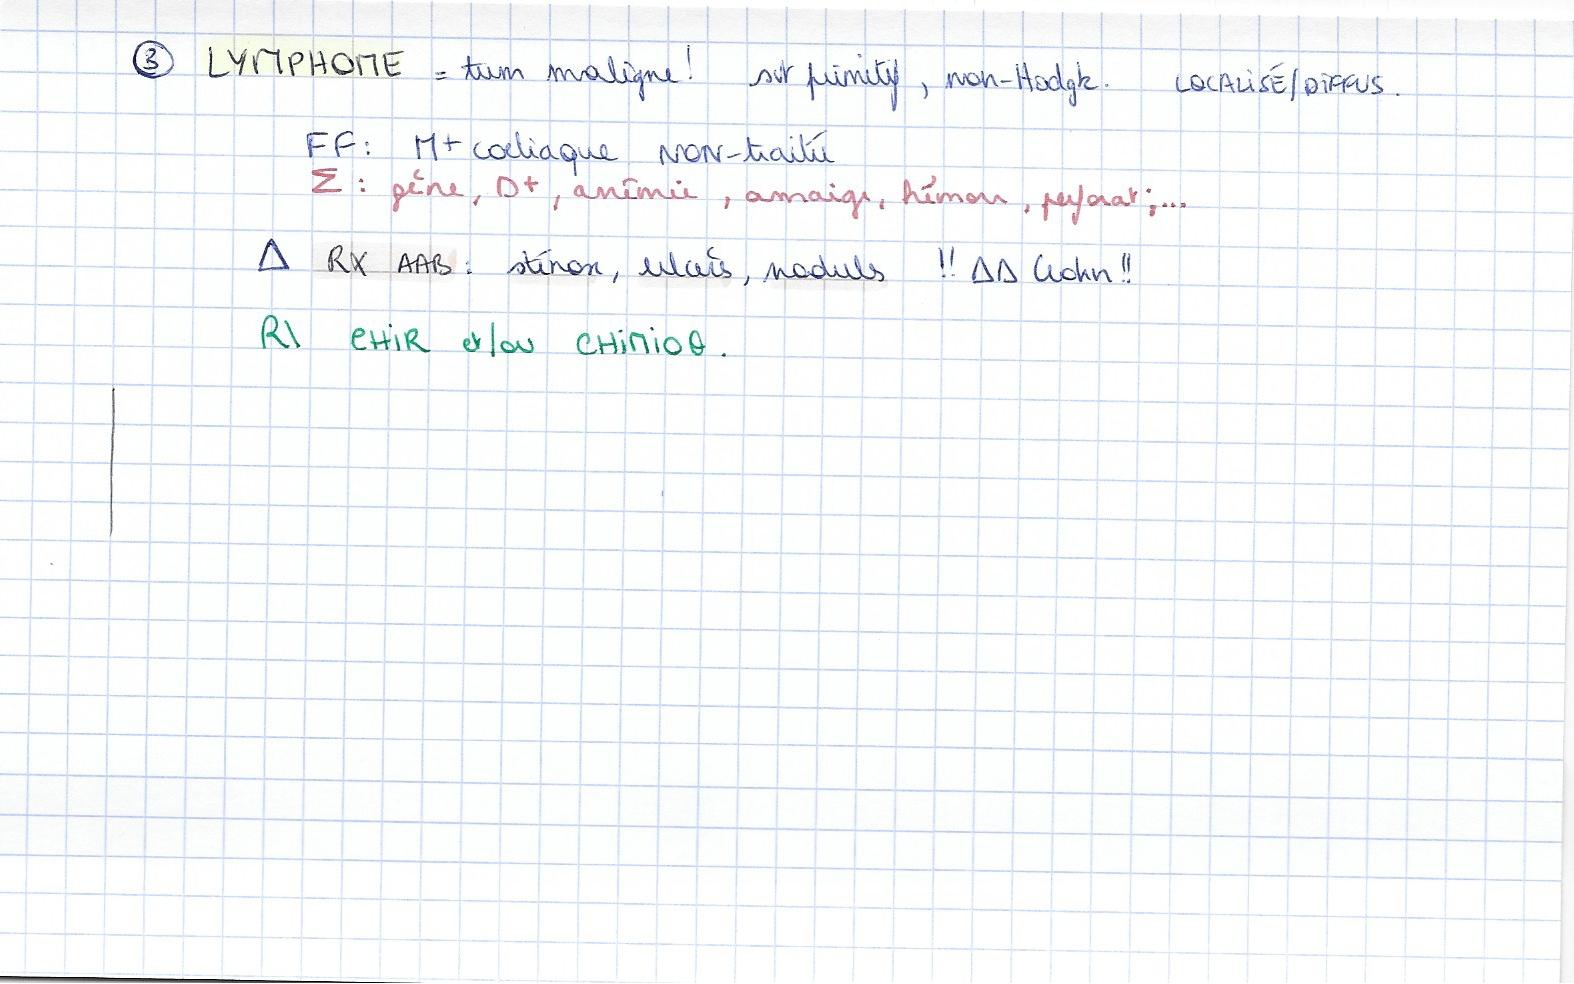 ③ LYMPHONE = tum maligne! svt primitif, non-Hodgk. LOCALISÉ/DIFFUS.
FF: M+ cœliaque NON-traitée
Σ: gêne, D+, anémie, amaigr, hémorr, perforat°;...
Δ RX AAB: sténose, ulcère, nodules !! ΔΔ Crohn!!
R\ CHIR et/ou CHIMIOθ.